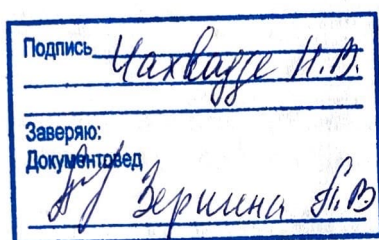 Подпись Чахвадзе Н.В.
Заверяю:
Документовед
Зершина П.В